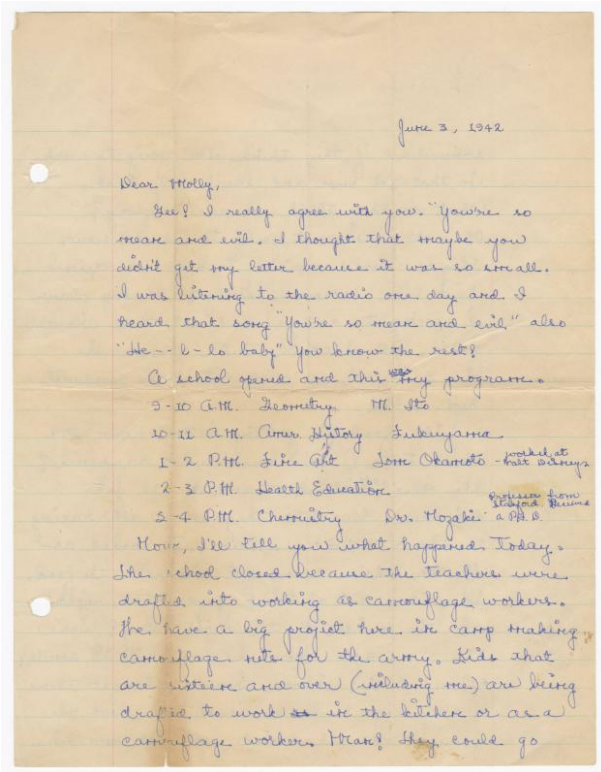 June 3, 1942
Dear Molly,
Gee! I really agree with you. "You're so
mean and evil. I thought that maybe you
didn't get my letter because it was so small.
I was listening to the radio one day and I
heard that song "You're so mean and evil" also
"He -- l - lo baby" You know the rest!
A school opened and this was my program.
9-10 A.M. Geometry M. Ito
10-11 A.M. Amer. History Fukuyama
1-2 P.M. Fine Art Tom Okamoto - worked at Walt Disney's
2-3 P.M. Health Education
3-4 P.M. Chemistry Dr. Nozaki - Professor from Stanford a P.h.D.
Now, I'll tell you what happened Today.
The school closed because the teachers were
drafted into working as camouflage workers.
We have a big project here in camp making
camouflage nets for the army. Kids that
are sixteen and over (including me) are being
drafted to work in the kitchen or as a
camouflage worker. Man! They could go